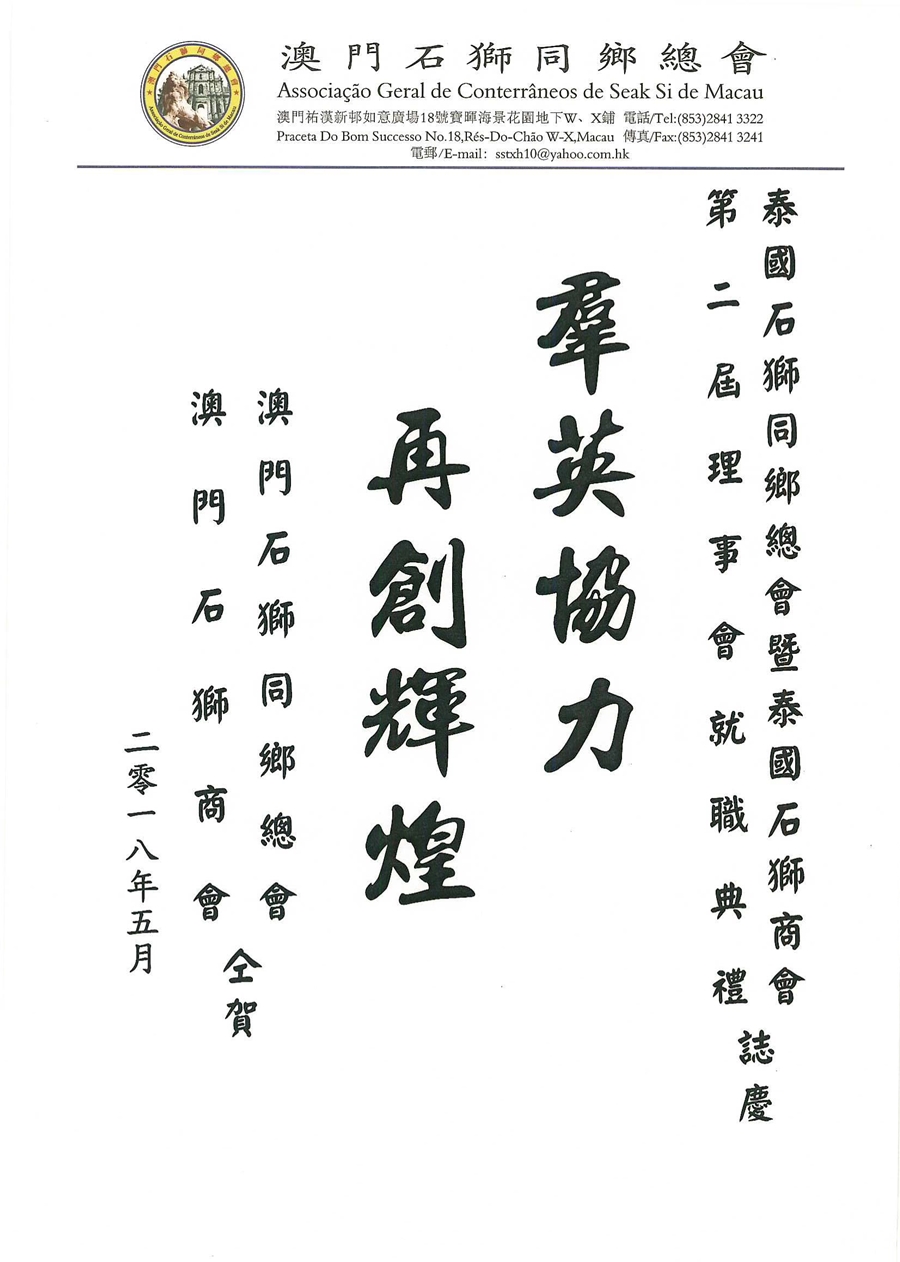 澳門石獅同鄉總會
Associação Geral de Conterrâneos de Seak Si de Macau
澳門祐漢新邨如意廣場18號寶暉海景花園地下W、X鋪 電話/Tel:(853)2841 3322
Praceta Do Bom Successo No.18,Rés-Do-Chão W-X,Macau 傳真/Fax:(853)2841 3241
電郵/E-mail: sstxh10@yahoo.com.hk
澳門石獅同鄉總會
Associação Geral de Conterrâneos de Seak Si de Macau
泰國石獅同鄉總會暨泰國石獅商會
第二屆理事會就職典禮
誌慶
羣英協力
再創輝煌
澳門石獅同鄉總會
澳門石獅商會
仝賀
二零一八年五月